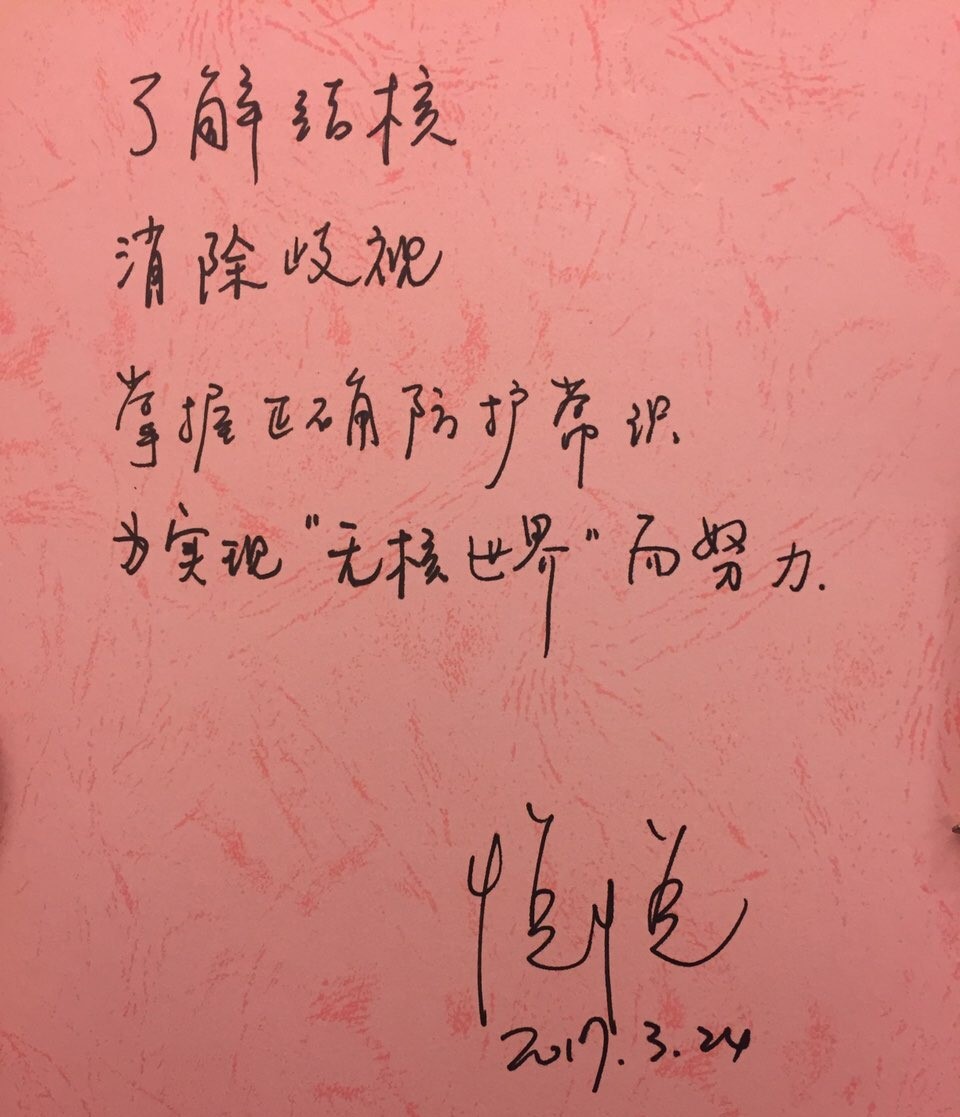 了解结核
消除歧视
掌握正确防护常识.
为实现"无核世界"而努力.
悦悦
2017.3.24